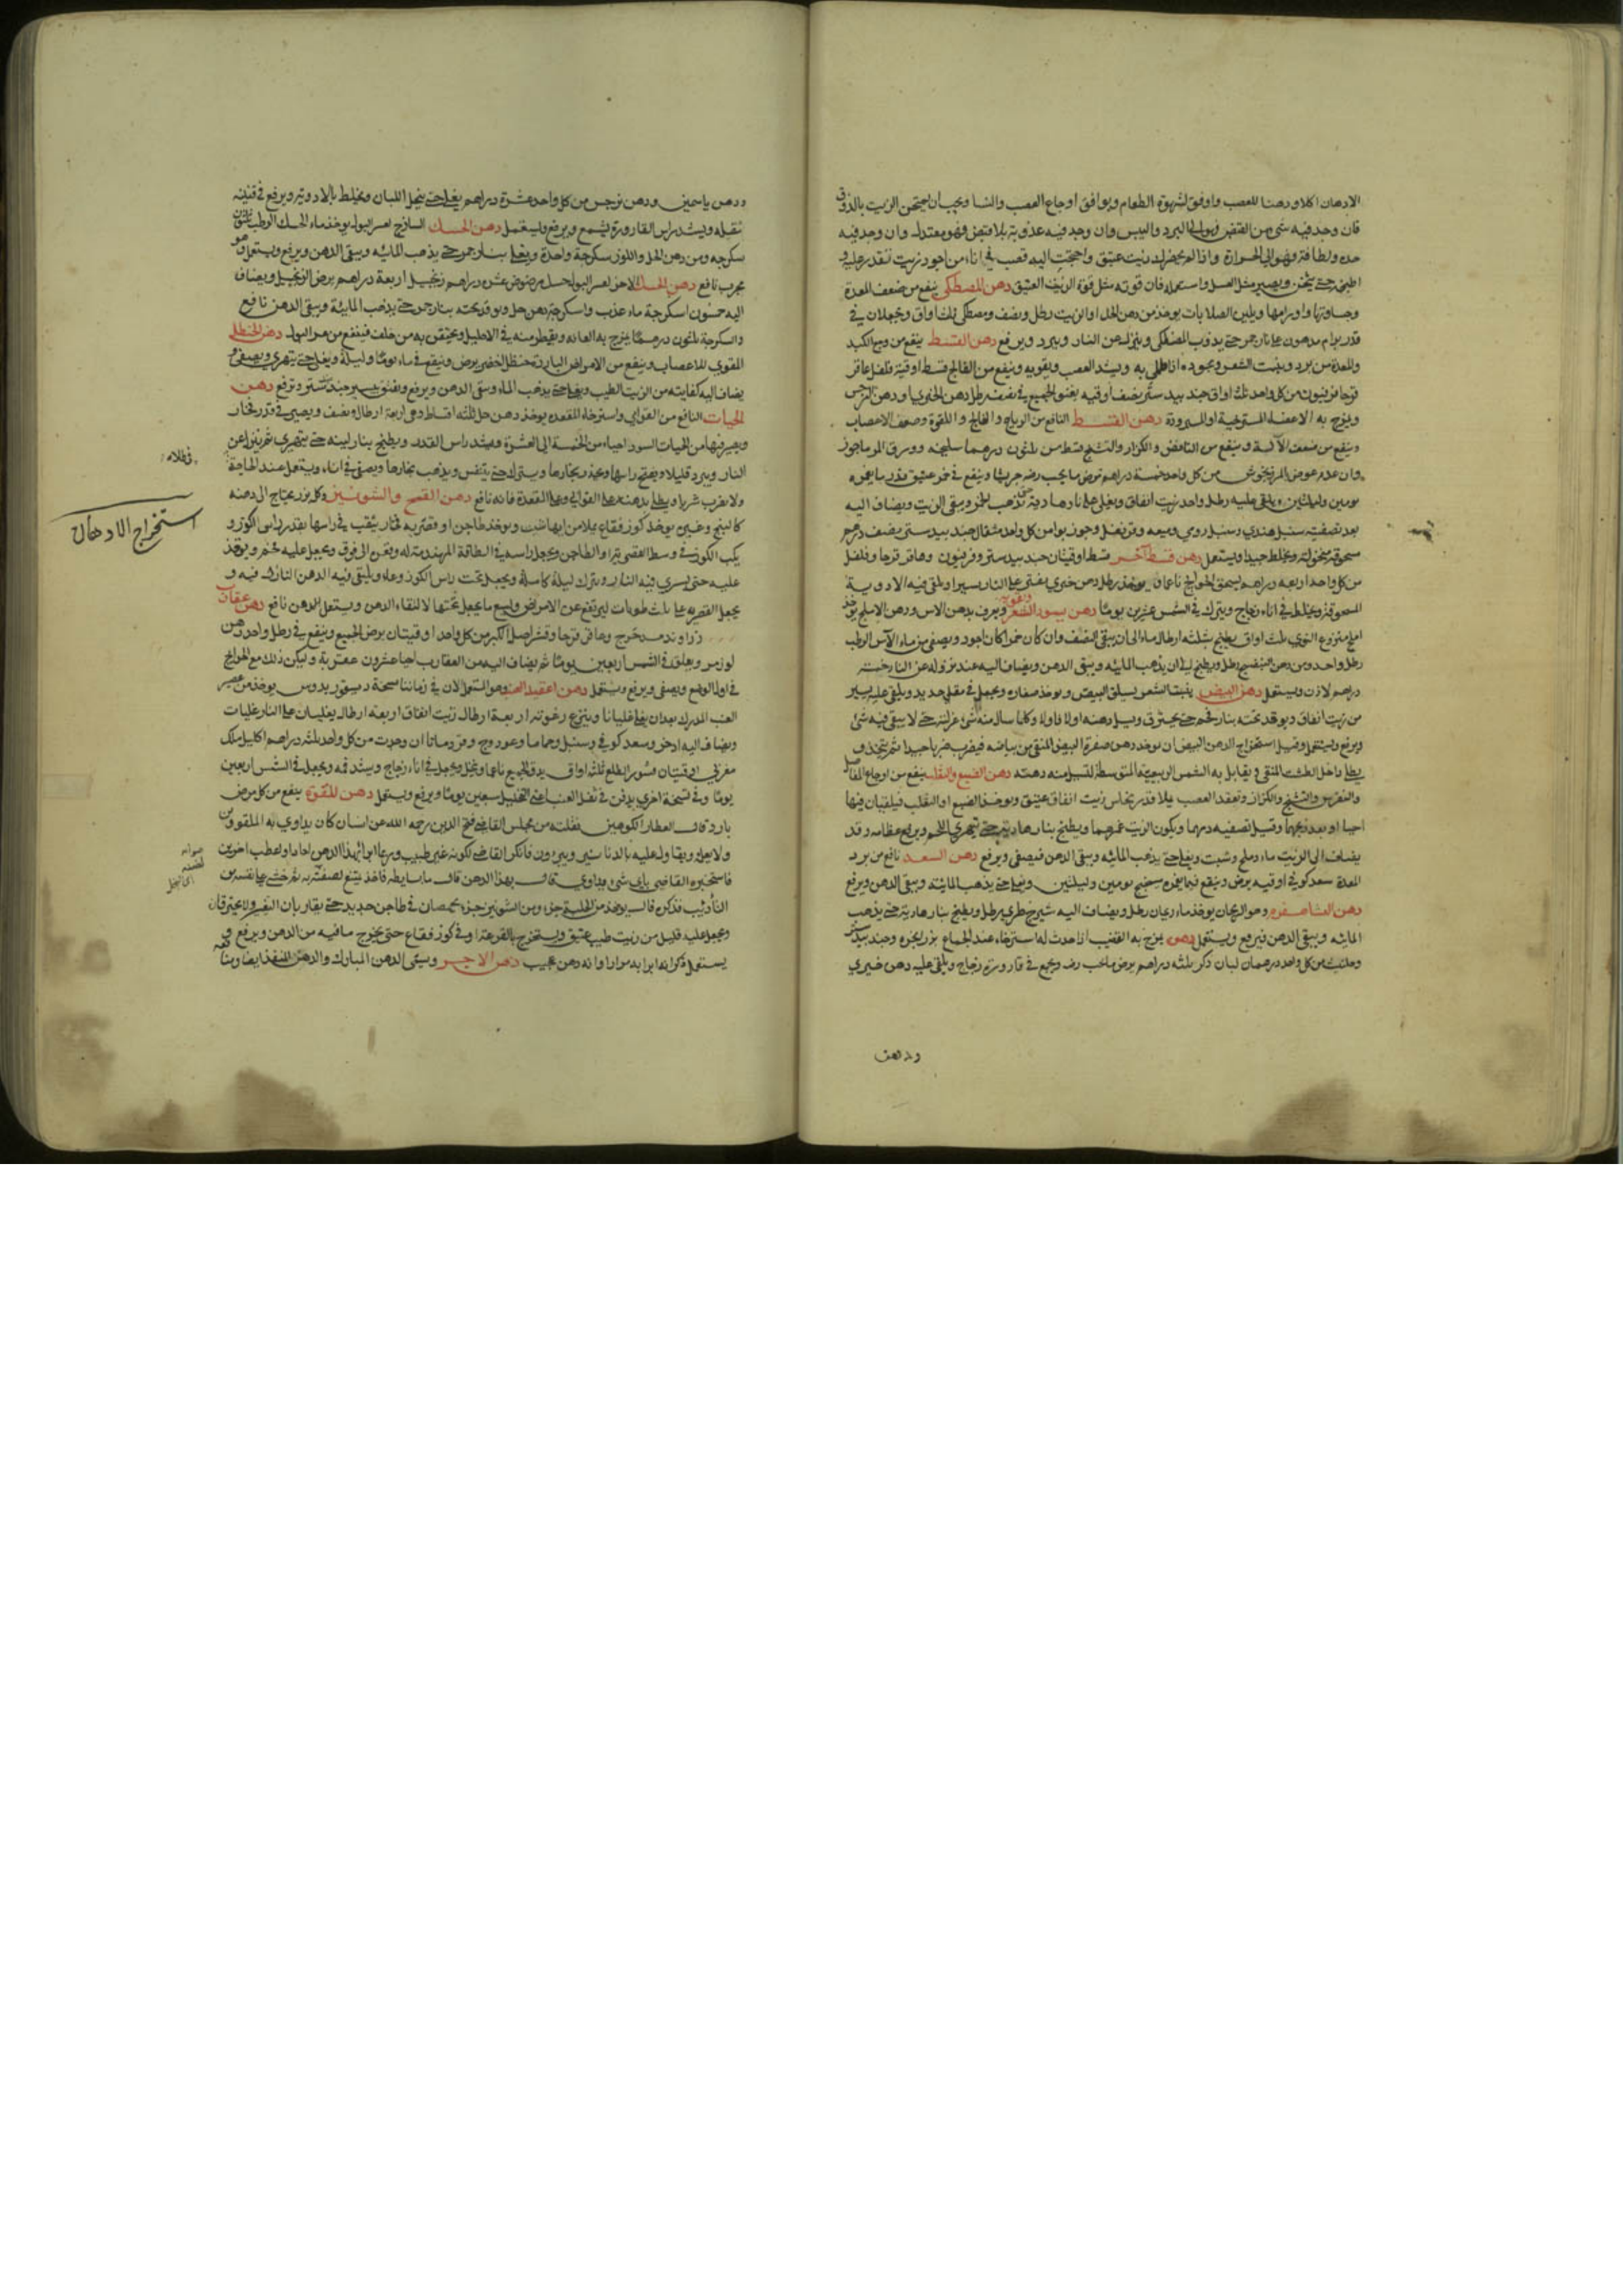 الادهان اكلا ودهنا للعصب واوفق لشهوة الطعام ويوافق اوجاع العصب والنسا ويجب ان يمتحن الزيت بالذوق
فان وجد فيه شئ من القبض فهو الى البرد واليبس وان وجد فيه عذوبة بلا قبض فهو معتدل وان وجد فيه
حده ولطافة فهو الى الحرارة واذا لم يحضر لك زيت عتيق واحتجت اليه فصب في اناء من اجود زيت تقدر عليه و
اطبخه حتى يثخن ويصير مثل العسل واستعمله فان قوته مثل قوة الزيت العتيق دهن المصطكى ينفع من ضعف المعدة
وجساوتها واورامها ويلين الصلابات يوخذ من دهن الحل او الزيت رطل ونصف ومصطكى ثلث اواق ويجعلان في
قدر برام مدهون على نار جمر حتى يذوب المصطكى وينزل عن النار ويبرد ويرفع دهن القسط ينفع من وجع الكبد
والمعدة من برد وينبت الشعر ويجوده اذا طلى به ويشد العصب ويقويه وينفع من الفالج قسط اوقية فلفل عاقر
قرحا فربيون من كل واحد ثلث اواق جند بيدستر نصف اوقيه يعتق الجميع في نصف رطل دهن الخيري او دهن النرجس
ويمزج به الاعضاء المسترخية او المبرودة دهن القسط النافع من الرياح والفالج واللقوة وضعف الاعصاب
وينفع من ضعف الآلة وينفع من النافض والكزاز والتشنج قسط من ثلثون درهما سليخه وورق المرماحوز
وان عدم عوض المرزنجوش من كل واحد خمسة دراهم ترض ما يجب رضه جريشا وينقع في خمر عتيق قدر ما يغمره
يومين وليلتين ويلقى عليه رطل واحد زيت انفاق ويغلى على نار هادية حتى يذهب الخمر ويبقى الزيت ويضاف اليه
بعد تصفيته سنبل هندي وسنبل رومي وميعه وقرنفل وجوزبوا من كل واحد مثقال جند بيدستر نصف درهم
مسحوقة منخولة ويخلط جيدا ويستعمل دهن قسط آخر قسط اوقيتان جند بيدستر وفربيون وعاقر قرحا وفلفل
من كل واحد اربعه دراهم يسحق الحوايج ناعما ويوخذ رطل دهن خيري يفتر على النار يسيرا ويلقى فيه الادوية
المسحوقة ويخلط في اناء زجاج ويترك في الشمس عشرين يوما دهن يسود الشعر ويقويه ويعرف بدهن الاس ودهن الاملج يوخذ
املج منزوع النوى ثلث اواق يطبخ بثلثه ارطال ماء الى ان يبقى النصف وان كان خمرا كان اجود ويصفى من ماء الآس الرطب
رطل واحد ومن دهن البنفسج رطل ويطبخ الى ان يذهب المائيه ويبقى الدهن ويضاف اليه عند نزوله عن النار خمسه
دراهم لاذن ويستعمل دهن البيض ينبت الشعر يسلق البيض ويوخذ صفاره ويجعل في مقلى حديد ويلقى عليه يسير
من زيت انفاق ويوقد تحته بنار فحم حتى يحترق ويسيل دهنه اولا فاولا وكلما سال منه شئ عزلته حتى لا يبقى فيه شئ
ويرفع ويستعمل وقيل استخراج الدهن البيض ان يوخذ دهن صفرة البيض المنقى من بياضه فيضرب ضربا جيدا ثم
يطلى داخل الطشت المنقى ويقابل به الشمس الربيعية المتوسطة لتسيل منه دهنه دهن الضبع والثعلب ينفع من اوجاع المفاصل
والنقرس والتشنج والكزاز وتعقد العصب يملا قدر نحاس زيت انفاق عتيق ويوخذ الضبع او الثعلب فيلقيان فيها
احيا او بعد ذبحهما وقيل تصفيه دمهما ويكون الزيت غمرهما ويطبخ بنار هادية حتى يتهرى اللحم ويرفع عظامه وقد
يضاف الى الزيت ماء وملح وشبت ويغلى حتى يذهب المائيه ويبقى الدهن فيصفى ويرفع دهن السعد نافع من برد
المعدة سعد كوفي اوقيه يرض وينقع فيما يغمره يومين وليلتين ويغلى حتى يذهب المائية ويبقى الدهن ويرفع
دهن الشاهسفرم وهو الريحان يوخذ ماء ريحان رطل ويضاف اليه شيرج طري رطل ويطبخ بنار هادية حتى يذهب
المائيه ويبقى الدهن فيرفع ويستعمل دهن يمزج به القضيب اذا حدث له استرخاء عند الجماع بزر انجره وجند بيدستر
وحلتيث من كل واحد درهمان لبان ذكر ثلثه دراهم يرض ما يجب رضه ويجمع في قارورة زجاج ويلقى عليه دهن خيري
ودهن
ودهن ياسمين ودهن نرجس من كل واحد عشرة دراهم يغلى حتى ينحل اللبان ويخلط بالادوية ويرفع في قنينه
ثقيله ويشد راس القارورة بشمع ويرفع ويستعمل دهن الحسك الساذج لعسر البول يوخذ ماء الحسك الرطب
سكرجه ومن دهن الحل واللوز سكرجة واحدة ويغلى بنار جمر حتى يذهب المائيه ويبقى الدهن ويرفع ويستعمل وهو
مجرب نافع دهن الحسك الاخر لعسر البول حسك مرضوض عشرة دراهم زنجبيل اربعة دراهم يرض الزنجبيل ويضاف
اليه خمسون اسكرجة ماء عذب واسكرجة دهن حل ويوقد تحته بنار جمر حتى يذهب المائية ويبقى الدهن نافع
واسكرجة ثلثون درهما يمزج به العانه ويقطر منه في الاحليل ويحتقن به من خلف فينفع من عسر البول دهن الحنظل
المقوي للاعصاب وينفع من الامراض الباردة حنظل اخضر يرض وينقع في ماء يوما وليلة ويغلى حتى يتهرى ويصفى و
يضاف اليه كفايته من الزيت الطيب ويغلى حتى يذهب الماء ويبقى الدهن ويرفع ويفتق بيسير جند بيدستر ويرفع دهن
الحيات النافع من القوابي واسترخاء المقعده يوخذ دهن حل ثلثه اقساط وهي اربعة ارطال ونصف ويصير في قدر فخار
ويصير فيها من الحيات السود احياء من الخمسة الى العشرة ويشد راس القدر ويطبخ بنار لينه حتى يتهرى ثم ينزل عن
النار ويبرد قليلا ويفتح راسها ويحذر بخارها ويترك حتى يتنفس ويذهب بخارها ويصفى في اناء ويستعمل عند الحاجة
ولا يقرب شربا ويطلى بدهنه على القوابي وعلى المقعدة فانه نافع دهن القمح والشونيز وكل بزر يحتاج الى دهنه
كالبنج وغيره يوخذ كوز فقاع يملا من ايها شئت ويوخذ طاجن او قصريه فخار يثقب في راسها بقدر راس الكوز و
يكب الكوز في وسط القصرية او الطاجن ويجعل راسه في الطاقة المهندمة له وتعن الى فوق ويجعل عليه فحم ويوقد
عليه حتى يسري فيه النار ويترك ليلة كاملة ويجعل تحت راس الكوز وعاء ويلتقى فيه الدهن النازل فيه و
يجعل القصريه على ثلث طوبات ليرتفع عن الارض وليسع ما يجعل تحتها لالتقاء الدهن ويستعمل الدهن نافع دهن عقارب
زراوند مدحرج وعاقر قرحا وقشر اصل الكبر من كل واحد اوقيتان يرض الجميع وينقع في رطل واحد دهن
لوز مر ويعلق في الشمس اربعين يوما ثم يضاف اليه من العقارب احيا عشرون عقربة وليكن ذلك مع الحوايج
في اول الوضع ويصفى ويرفع ويستعمل دهن اعقيد العنب وهو المستعمل الان في زماننا صحة ديسقوريدوس يوخذ من عصير
العنب المدرك بعد ان يغلى غليانا وينزع رغوته اربعة ارطال زيت انفاق اربعة ارطال يغليان على النار غليات
ويضاف اليه اذخر وسعد كوفي وسنبل وحماما وعود وج وقردمانا ان وجدت من كل واحد ثلثه دراهم اكليل ملك
اوقيتان قشور الطلع ثلثه اواق يدق الجميع ناعما وينخل ويجعل في اناء زجاج ويشد فمه ويجعل في الشمس اربعين
يوما وفي نسخة اخرى يدفن في ثفل العنب سبعين يوما ويرفع ويستعمل دهن للقوة ينفع من كل مرض
بارد قال العطار الكوهين نقلته من مجلس القاضي فتح الدين رحمه الله عن انسان كان يداوي به الملقووين
ولا يعلم ويقاوله عليه بالدنانير ويبرؤون فانكر القاضي لكونه غير طبيب وربما ابرا بهذا الدهن احادا واعطب اخرين
فاستخبره القاضي باي شئ يداوي قال بهذا الدهن
الدهن قال يوخذ من الحلبة جزء ومن الشونيز جزء يحمصان في طاجن حديد حتى يقاربان
ويجعل عليه قليل من زيت طيب عتيق ويستخرج بالقرعة او في كوز فقاع حتى يخرج ما فيه من الدهن ويرفع و
يستعمل ذكر انه ابرا به مرارا وانه دهن عجيب دهن الاجر ويسمى الدهن المبارك والدهن المنفذ ايضا
استخراج الادهان